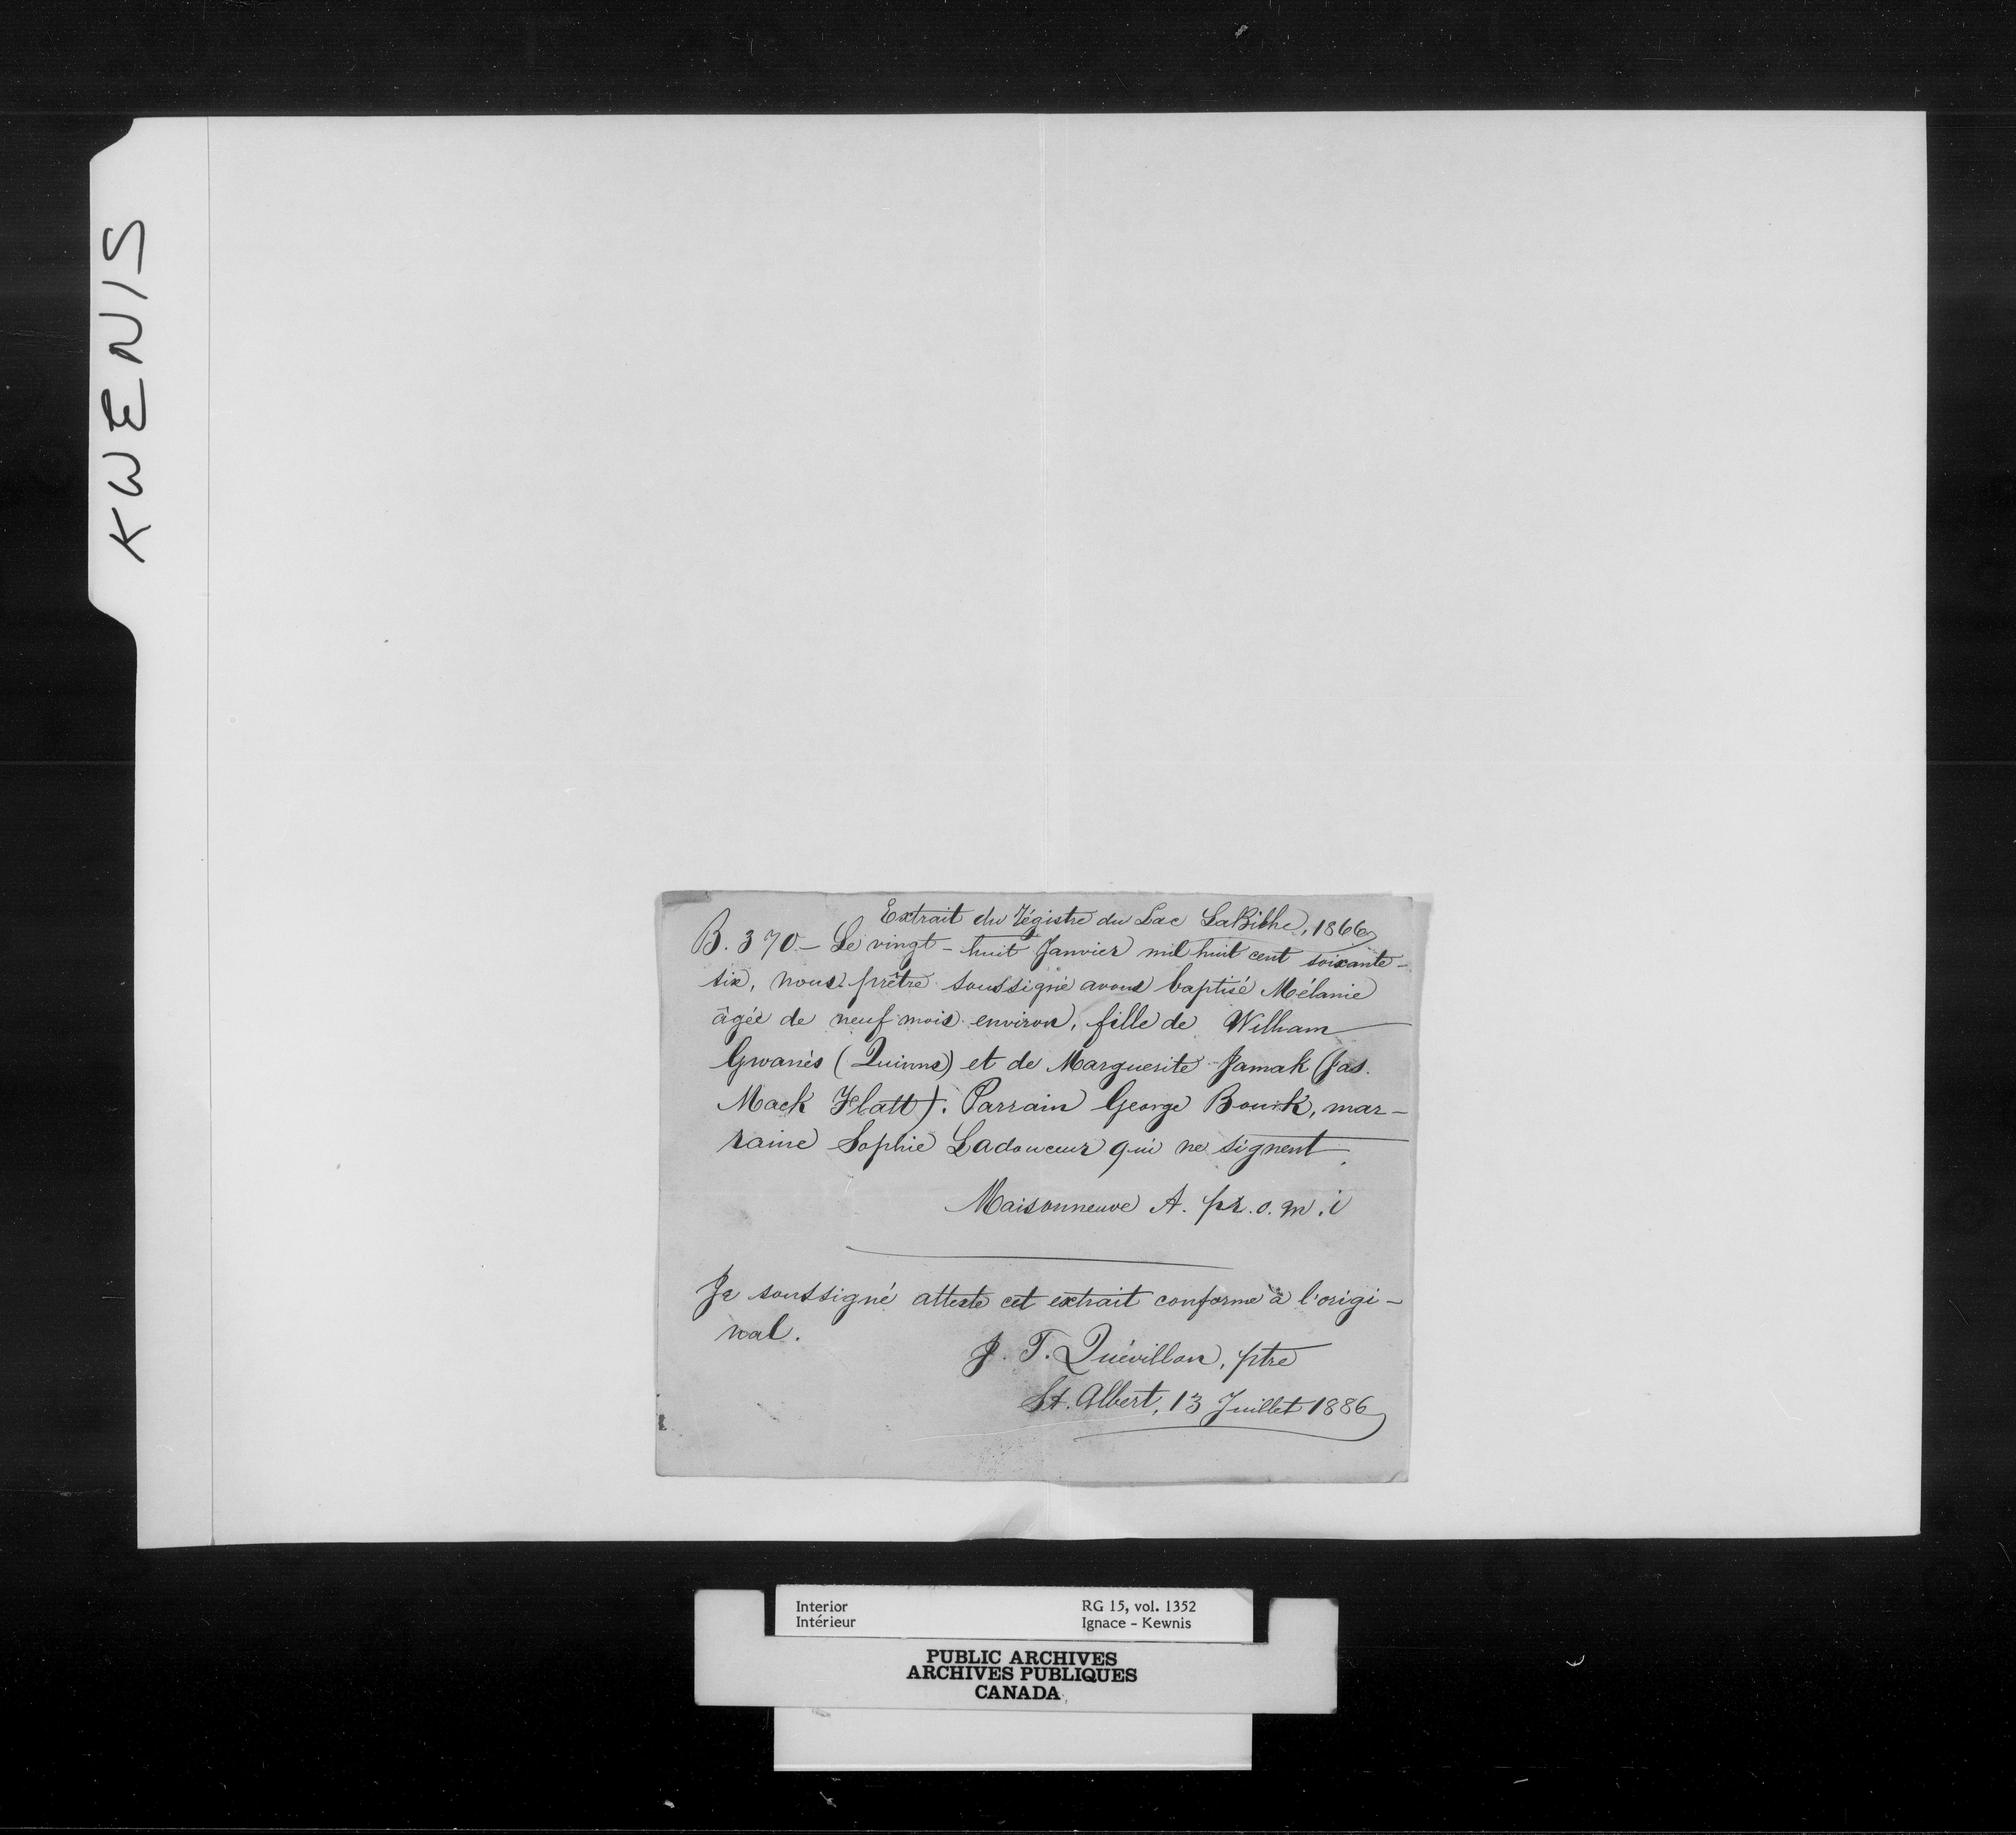 KWENIS
Extrait du régistre du Lac LaBiche, 1866
B. 370 - Le vingt-huit Janvier mil huit cent soixante-
six, nous prêtre soussigné avons baptisé Mélanie
âgée de neuf mois environ, fille de William
Gwanès (Quinns) et de Marguerite Jamak (Jas.
Mack Flatt). Parrain George Bourk, mar-
raine Sophie Ladouceur qui ne signent
Maisonneuve A. pr. o. m. i
Je soussigné atteste cet extrait conforme à l'origi-
nal.
J. T. Quévillon, ptre
St. Albert, 13 Juillet 1886
Interior RG 15, vol. 1352
Intérieur Ignace - Kewnis
PUBLIC ARCHIVES
ARCHIVES PUBLIQUES
CANADA